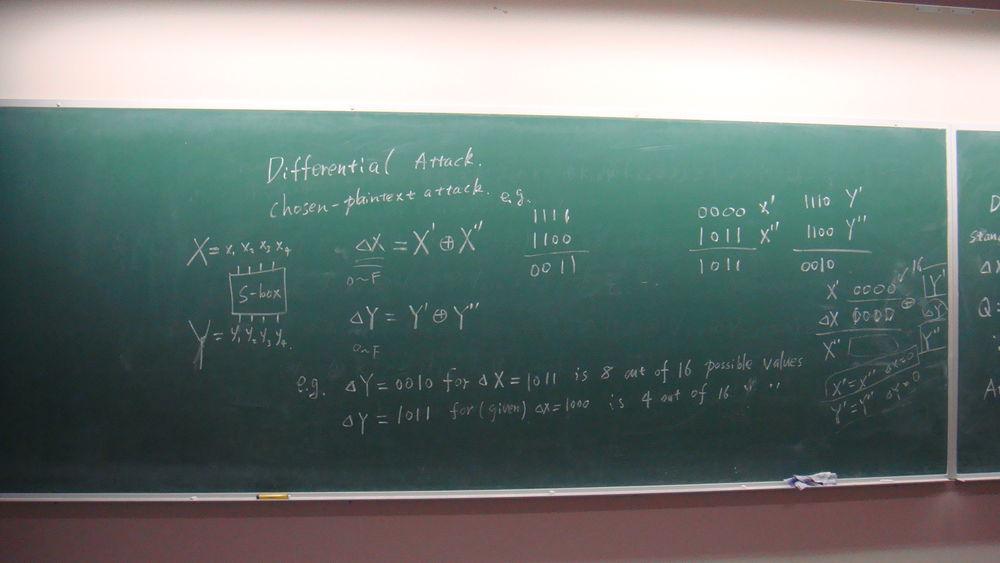 Differential Attack.
chosen-plaintext attack.
X = x₁ x₂ x₃ x₄
S-box
Y = y₁ y₂ y₃ y₄.
ΔX = X' ⊕ X''
0~F
ΔY = Y' ⊕ Y''
0~F
e.g.
1111
1100
0011
0000 X'
1011 X''
1011
1110 Y'
1100 Y''
0010
16
X' 0000
ΔX 0000
X''
⊕
Y'
ΔY
Y''
X'=X'' ΔX=0
Y'=Y'' ΔY=0
e.g. ΔY = 0010 for ΔX = 1011 is 8 out of 16 possible values
ΔY = 1011 for (given) ΔX=1000 is 4 out of 16 " "
D
ΔX
Q:
A